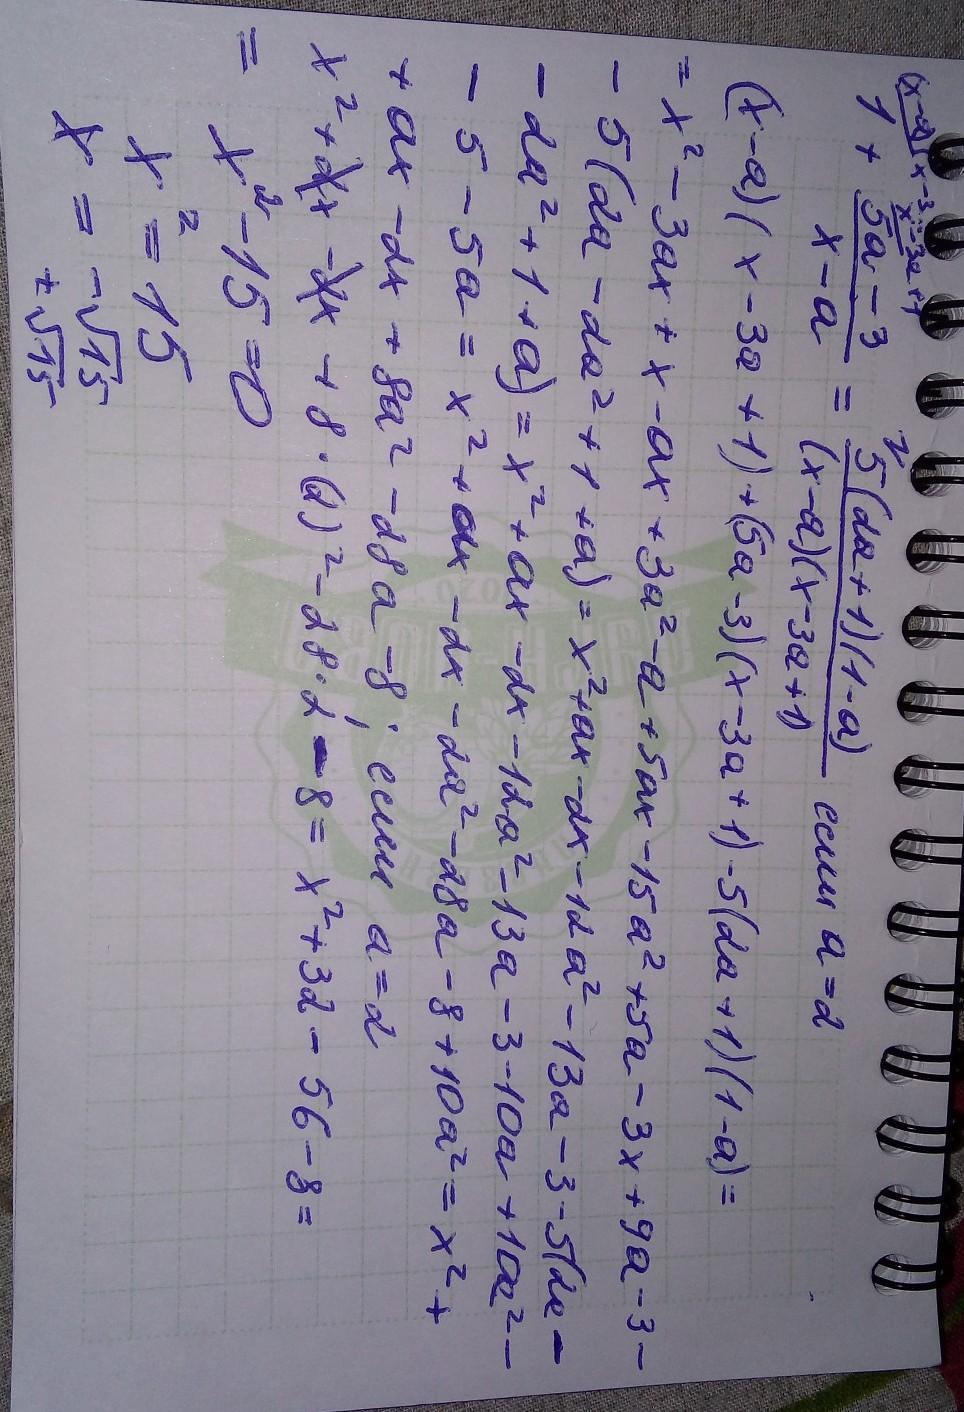 (x-a)(x-3a+1
x-3a+1
1 + 5a-3 / x-a = 5(2a+1)(1-a) / (x-a)(x-3a+1) если a=2
(x-a)(x-3a+1)+(5a-3)(x-3a+1)-5(2a+1)(1-a)=
= x²-3ax+x-ax+3a²-a+5ax-15a²+5a-3x+9a-3-
-5(2a-2a²+1+a)=x²+ax-2x-12a²-13a-3-5(2a-
-2a²+1+a)=x²+ax-2x-12a²-13a-3-10a+10a²-
-5-5a=x²+ax-2x-2a²-28a-8+10a²=x²+
+ax-2x+8a²-28a-8; если a=2
x²+2x-2x+8·(2)²-28·2-8=x²+32-56-8=
= x²-15=0
x²=15
x=-√15
+√15